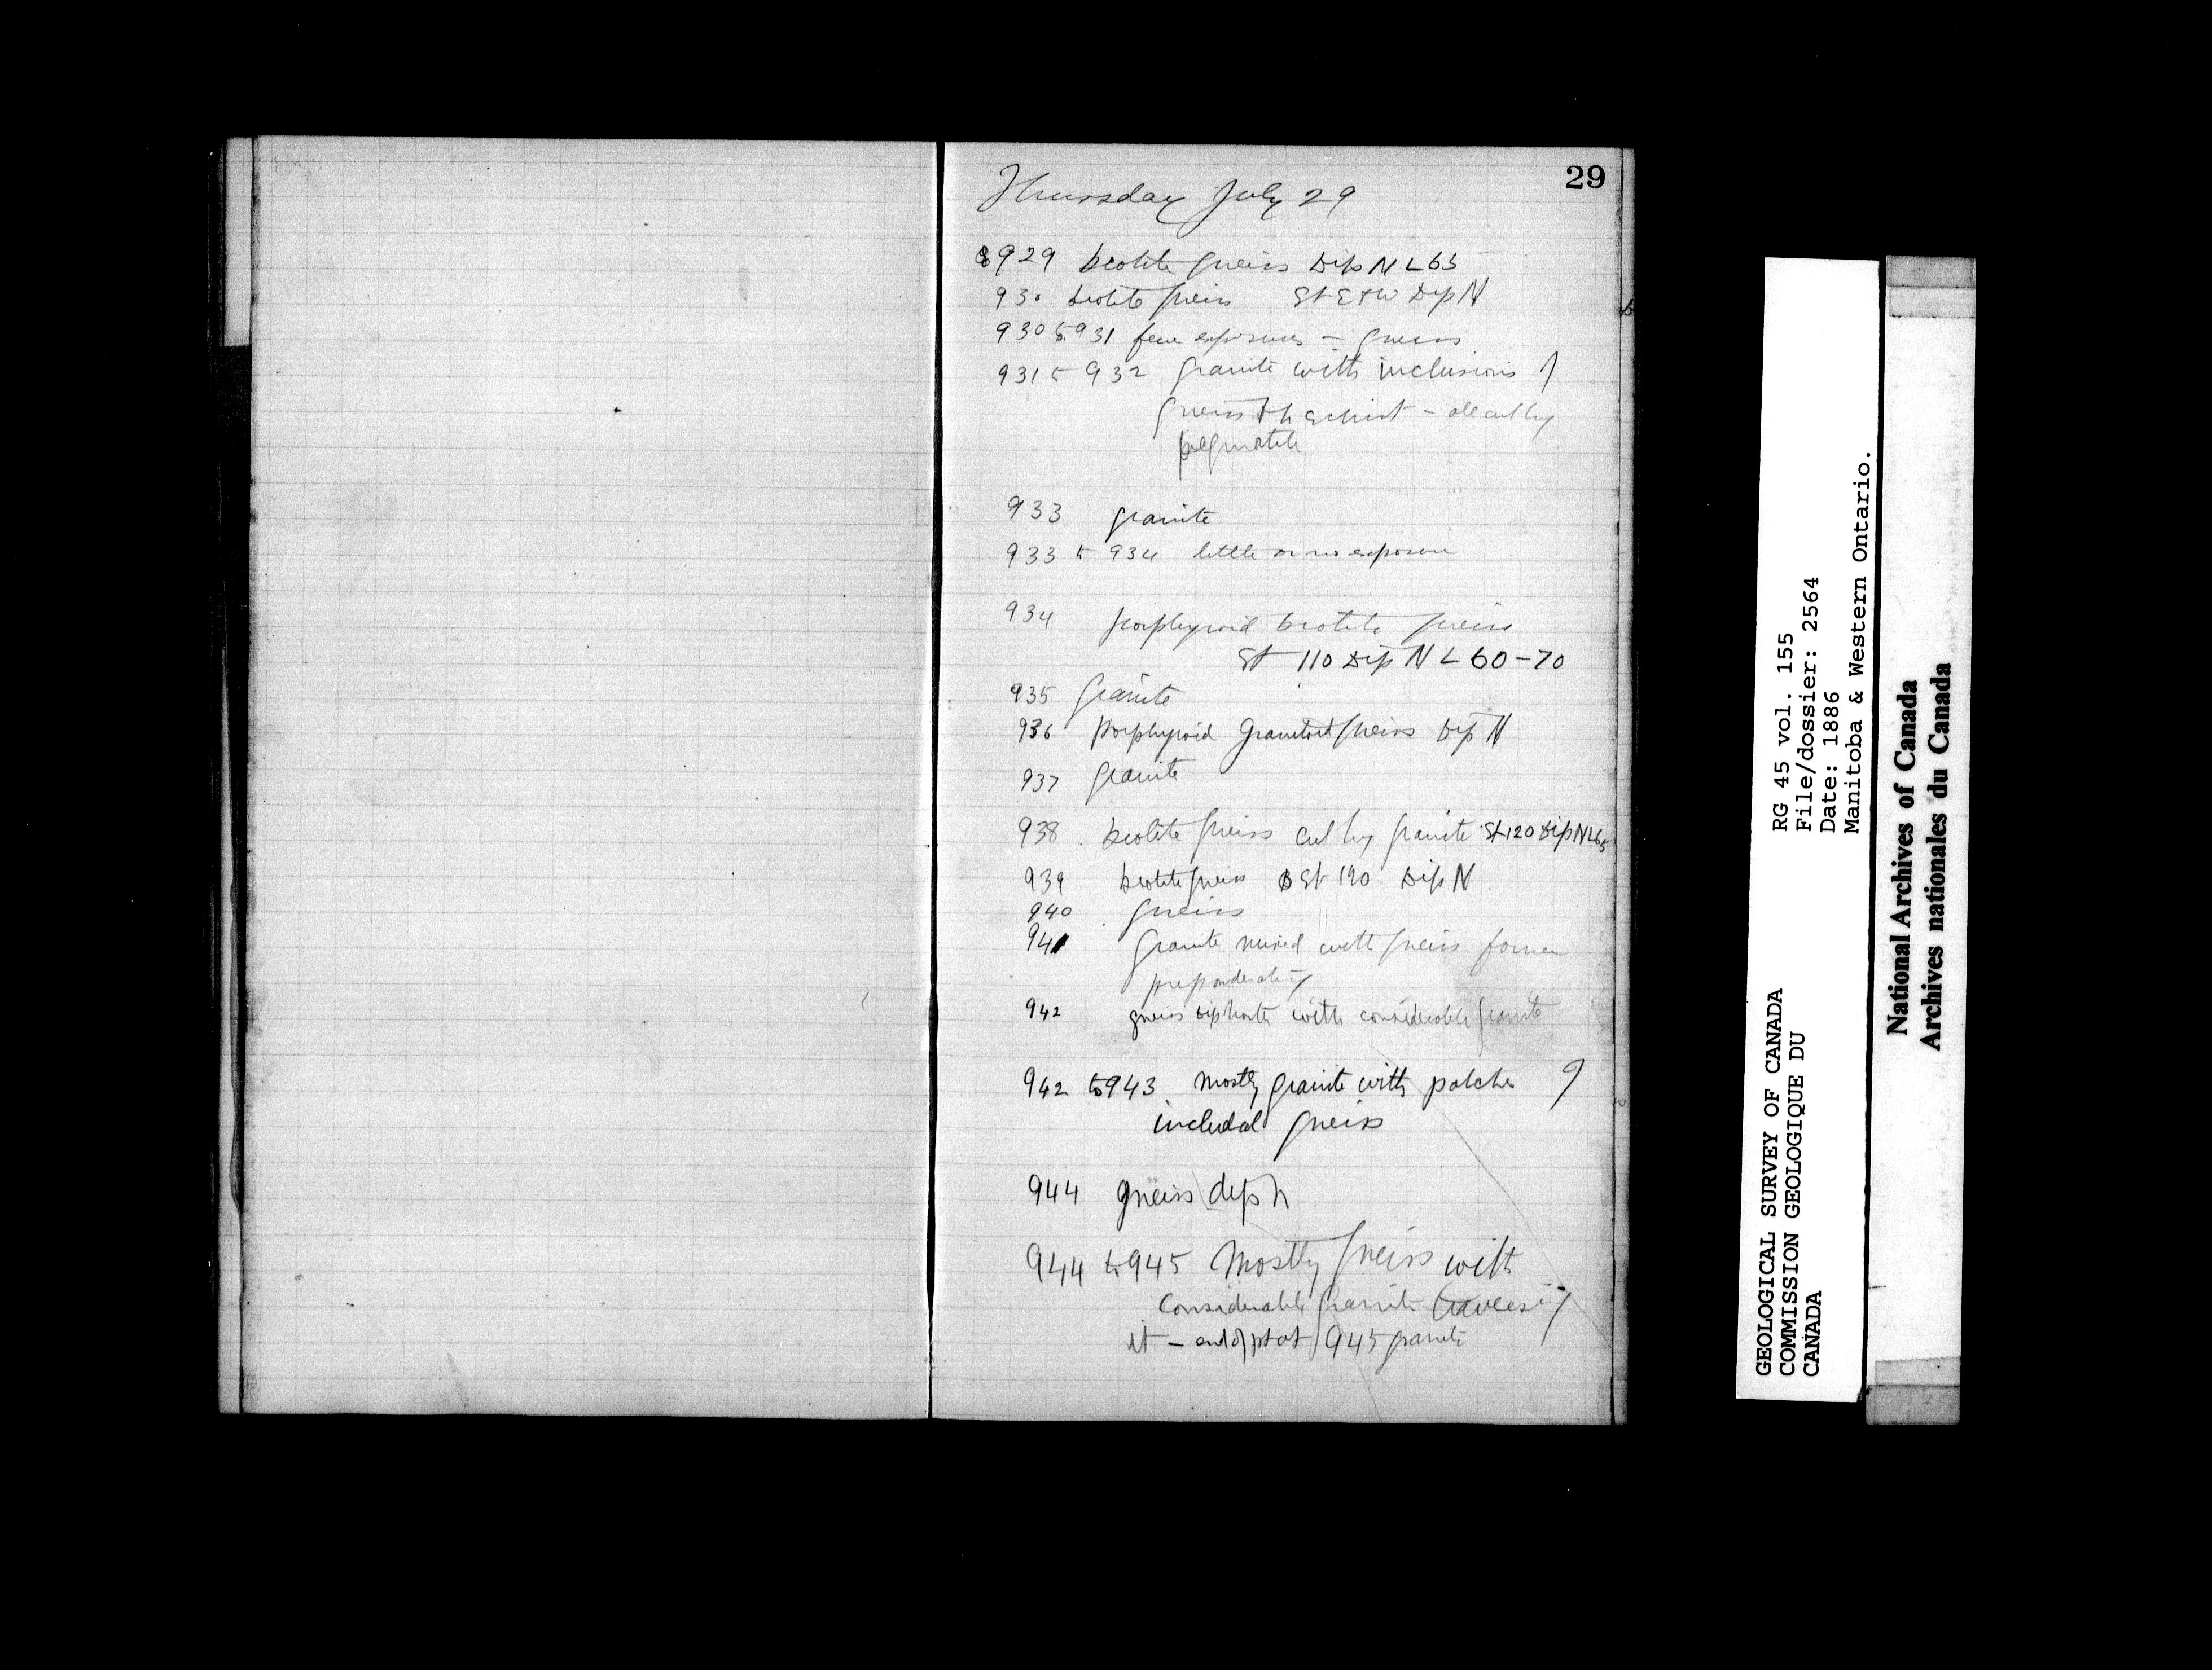 29
Thursday July 29
929 biotite gneiss Dip N L 65
930 biotite gneiss St E & W Dip N
930 to 931 few exposures - gneiss
931 to 932 granite with inclusions of
gneiss & h schist - all cut by
pegmatite
933 granite
933 to 934 little or no exposure
934 porphyroid biotite gneiss
St 110 Dip N L 60-70
935 granite
936 Porphyroid Granitoid gneiss Dip N
937 granite
938 biotite gneiss cut by granite St 120 Dip N L 65
939 biotite gneiss St 120 Dip N
940 gneiss
941 Granite mixed with gneiss former
preponderating
942 gneiss dip North with considerable granite
942 to 943 mostly granite with patches of
included gneiss
944 gneiss dip N
944 to 945 Mostly gneiss with
considerable granite traversing
it - end of pt at 945 granite
GEOLOGICAL SURVEY OF CANADA
COMMISSION GEOLOGIQUE DU
CANADA
RG 45 vol. 155
File/dossier: 2564
Date: 1886
Manitoba & Western Ontario.
National Archives of Canada
Archives nationales du Canada